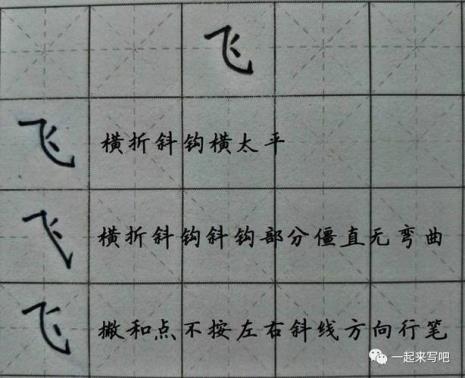 飞
飞 横折斜钩横太平
飞 横折斜钩斜钩部分僵直无弯曲
飞 撇和点不按左右斜线方向行笔
一起来写吧